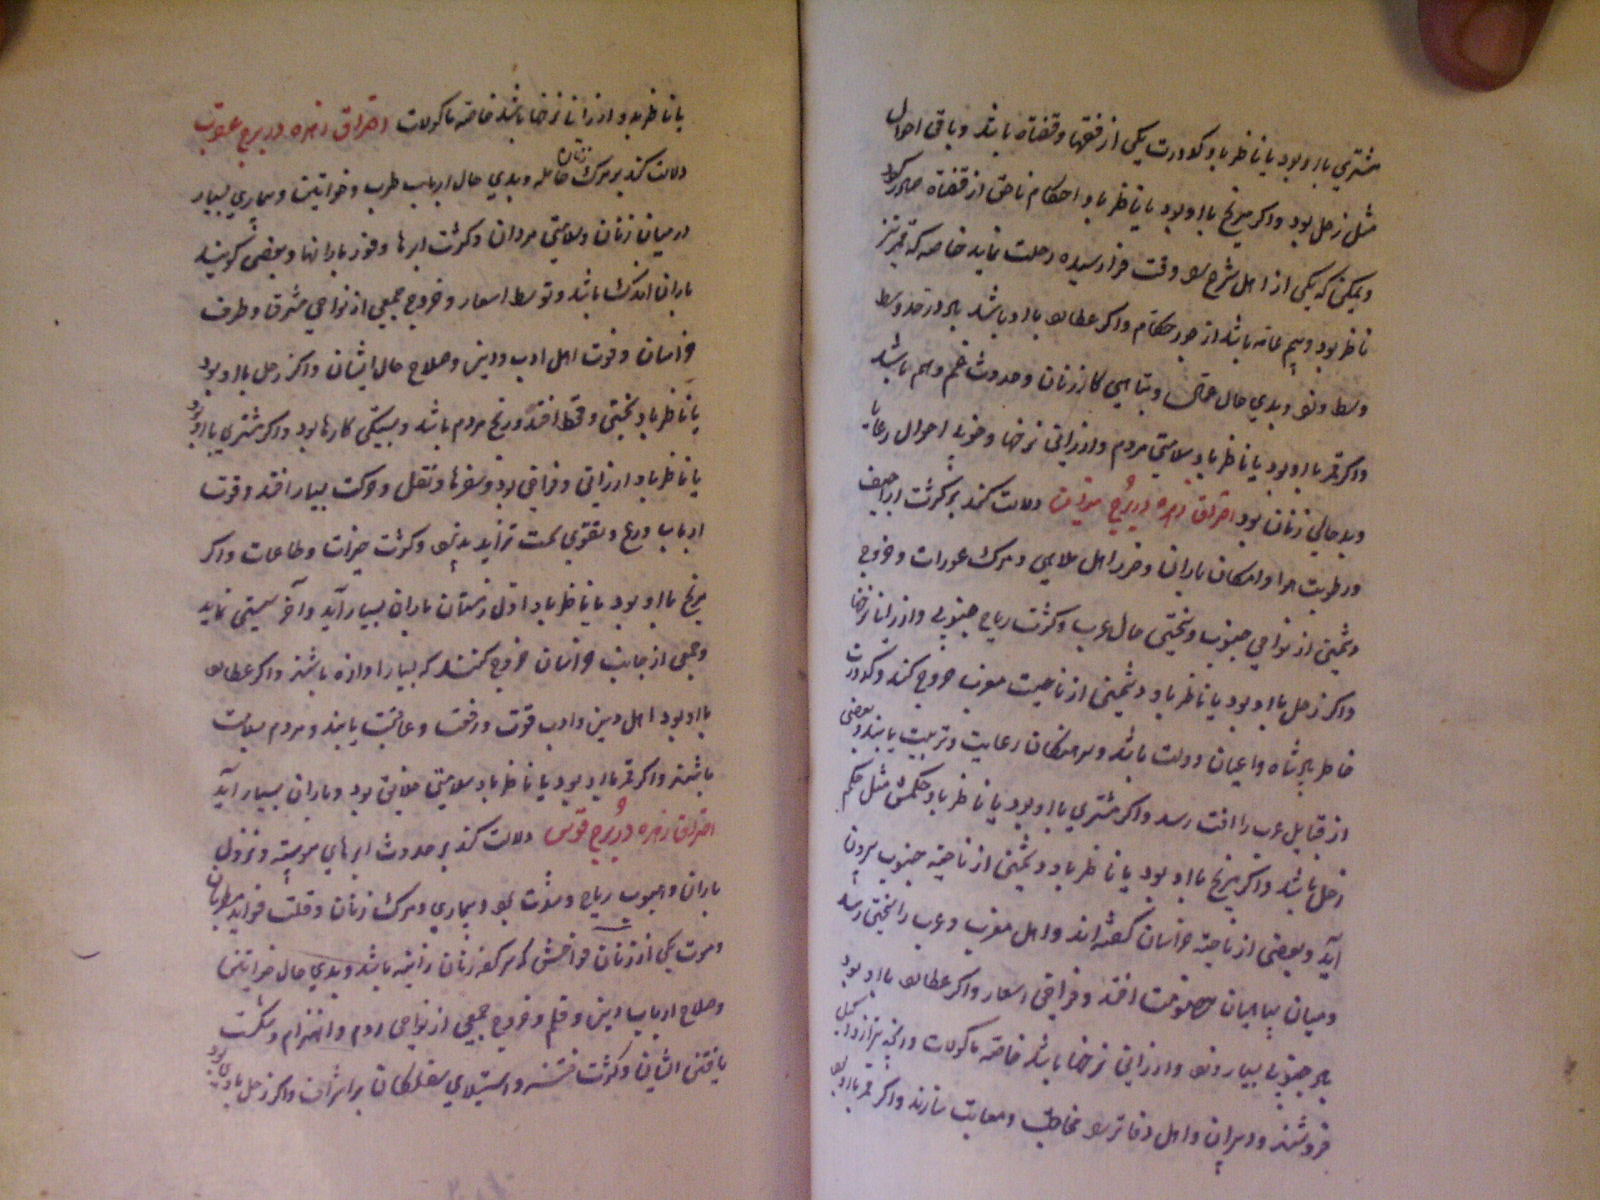 مشتری با او بود یا ناظر باو کدورت یکی از فقها و قضاة باشد و باقی احوال
مثل زحل بود و اگر مریخ با او بود یا ناظر باو احکام ناحق از قضاة صادر کردد
و یمکن که یکی از اهل شرع وقت فرا رسیده رحلت نماید خاصه که قمر نیز
ناظر بود و بیم عامه باشد از جور حکام و اکر عطارد با او باشد در حد وسط
وسط وبدی حال عمال و تباهی کار زنان و حدوث غم و هم باشد
و اکر قمر با او بود یا ناظر باو سلامتی مردم و ارزانی نرخها و خوبی احوال رعایا
و بد حالی زنان بود احتراق زهره در برج میزان دلالت کند بر کثرت اراجیف
و رطوبت هوا و امکان باران و ضرر اهل ملاهی و مرک عورات و خروج
دشمنی از نواحی جنوب و سختی حال عرب و کثرت ریاح جنوبی و ارزانی نرخها
و اکر زحل با او بود یا ناظر باو دشمنی از ناحیت مغرب خروج کند و کدورت
خاطر پادشاه و اعیان دولت باشد و سرهنکان رعایت و تربیت یابند و بعضی
از قبایل عرب را آفت رسد و اکر مشتری با او بود یا ناظر باو حکمش مثل حکم
زحل باشد و اکر مریخ با او بود یا ناظر باو دشمنی از ناحیه جنوب بیرون
آید و بعضی از ناحیه خراسان کفته اند و اهل مغرب و عرب را سختی رسد
و میان سپاهیان خصومت افتد و فراخی اسعار و اکر عطارد با او بود
جنوبی بسیار و ارزانی نرخها باشد خاصه ماکولات و
فروشند و دبیران و اهل دفاتر مخاطب و معاتب سازند و اکر قمر با او بود
یا ناظر بدو ارزانی نرخها باشد خاصه ماکولات احتراق زهره در برج عقرب
دلالت کند بر مرک زنان حامله و بدی حال ارباب طرب و خواتین و بیماری بسیار
در میان زنان و سلامتی مردان و کثرت ابرها و باراانها و بعضی کویند
باران اندک باشد و توسط اسعار و خروج جمعی از نواحی مشرق و طرف
خراسان و فوت اهل ادب و دین و صلاح حال ایشان و اکر زحل با او بود
یا ناظر باو سختی و قحط افتد و رنج مردم باشد و بستکی کارها بود و اکر مشتری با او بود
یا ناظر باو ارزانی و فراخی بود و سفرها و نقل و حرکت بسیار افتد و قوت
ارباب ورع و تقوی سمت تزاید پذیرد و کثرت خیرات و طاعات و اکر
مریخ با او بود یا ناظر باو اول زمستان باران بسیار آید و آخر سستی نماید
و جمعی از جانب خراسان خروج کنند که بسیار آوازه باشند و اکر عطارد
با او بود اهل دین و ادب قوت و رفعت و عافیت یابند و مردم بسلامت
باشند و اکر قمر با او بود یا ناظر باو سلامتی خلایق بود و باران بسیار آید
احتراق زهره در برج قوس دلالت کند بر حدوث ابرهای پیوسته و نزول
باران و هبوب ریاح و بیماری و مرک زنان و قلت فواید مطربان
و موت یکی از زنان فواحش که سرکرده زنان زانیه باشد و بدی حال خواتین
و صلاح ارباب دین و قلم و خروج جمعی از نواحی روم و انهزام و شکست
یافتن ایشان و کثرت فتنه و استیلای سفلکان بر اشراف و اکر زحل با او بود